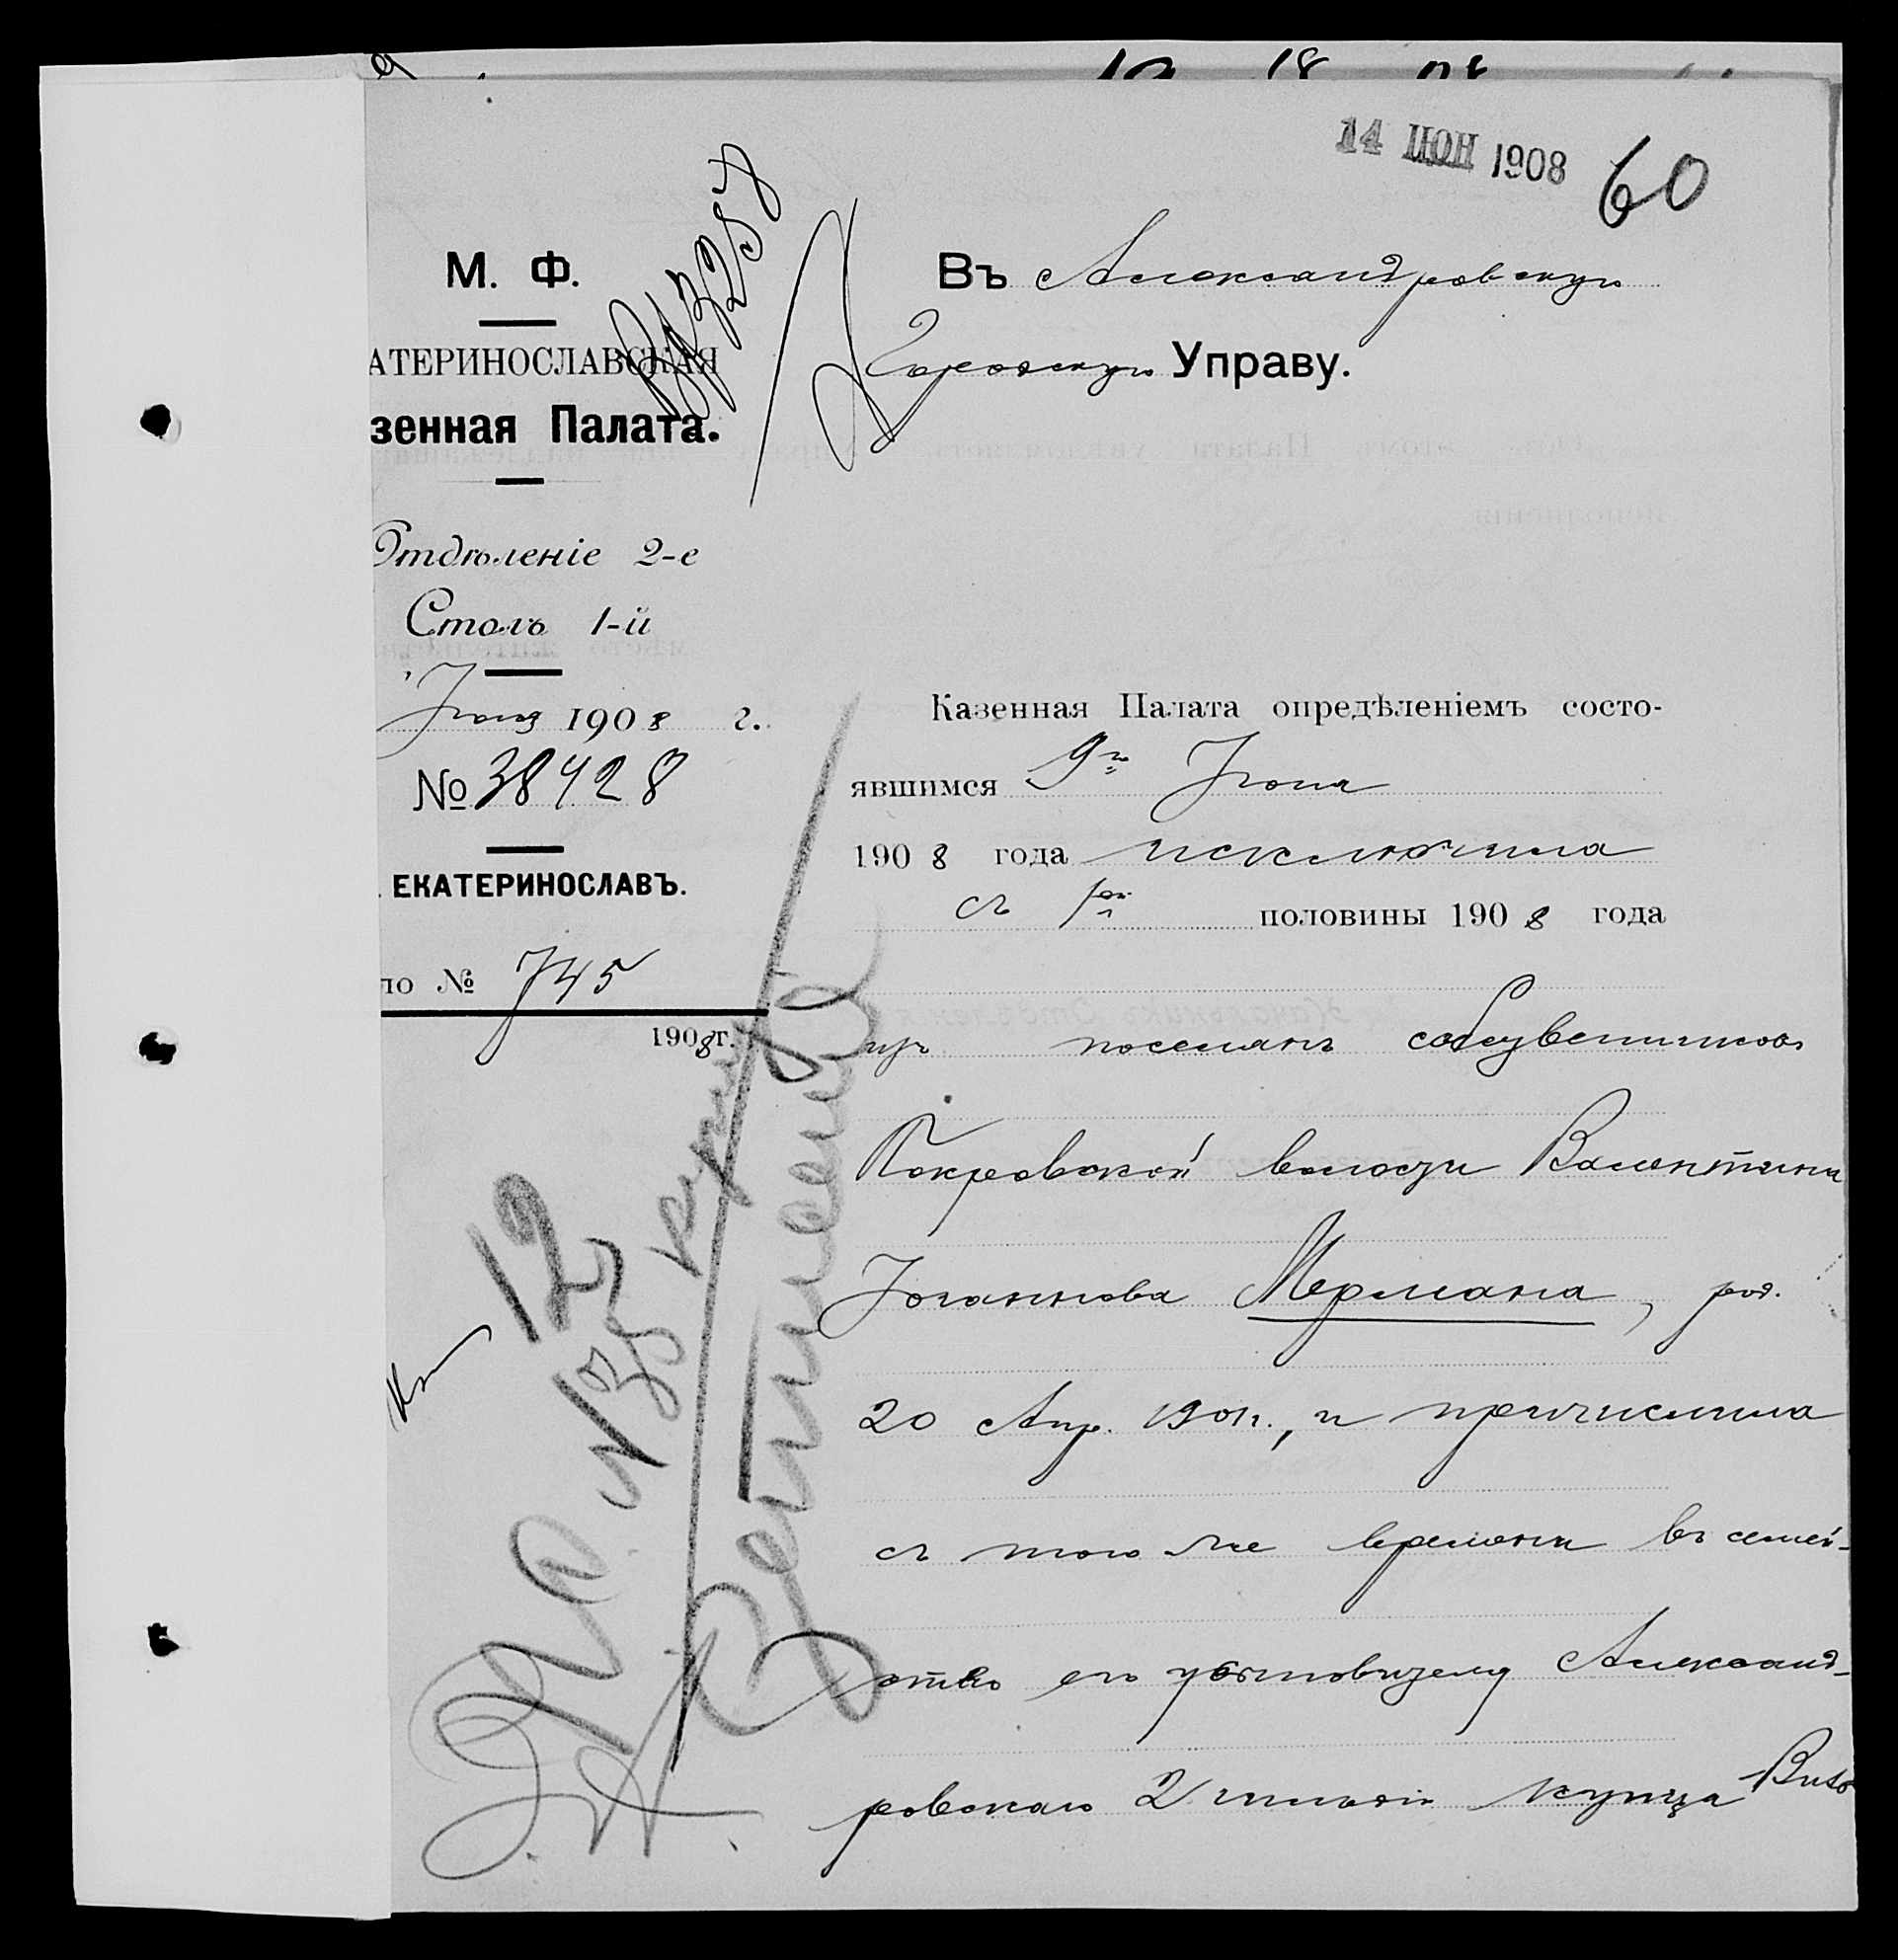 14 ІЮН 1908
60
М. Ф.
АТЕРИНОСЛАВСКАЯ
зенная Палата.
Отдѣленіе 2-е
Столъ 1-й
Іюня 1908 г.
№ 38428
ЕКАТЕРИНОСЛАВЪ.
ло № 745
1908 г.
Въ Александровскую
Городскую Управу.
Казенная Палата опредѣленіемъ состо-
явшимся 9го Іюня
1908 года исключила
съ 1ой половины 1908 года
изъ поселянъ собственниковъ
Покровской волости Валентина
Іоганнова Мермана, род.
20 Апр. 1901г., и причислила
съ того же времени въ семей-
ство его усыновителю Александ-
ровскаго 2 гильдіи купца
12